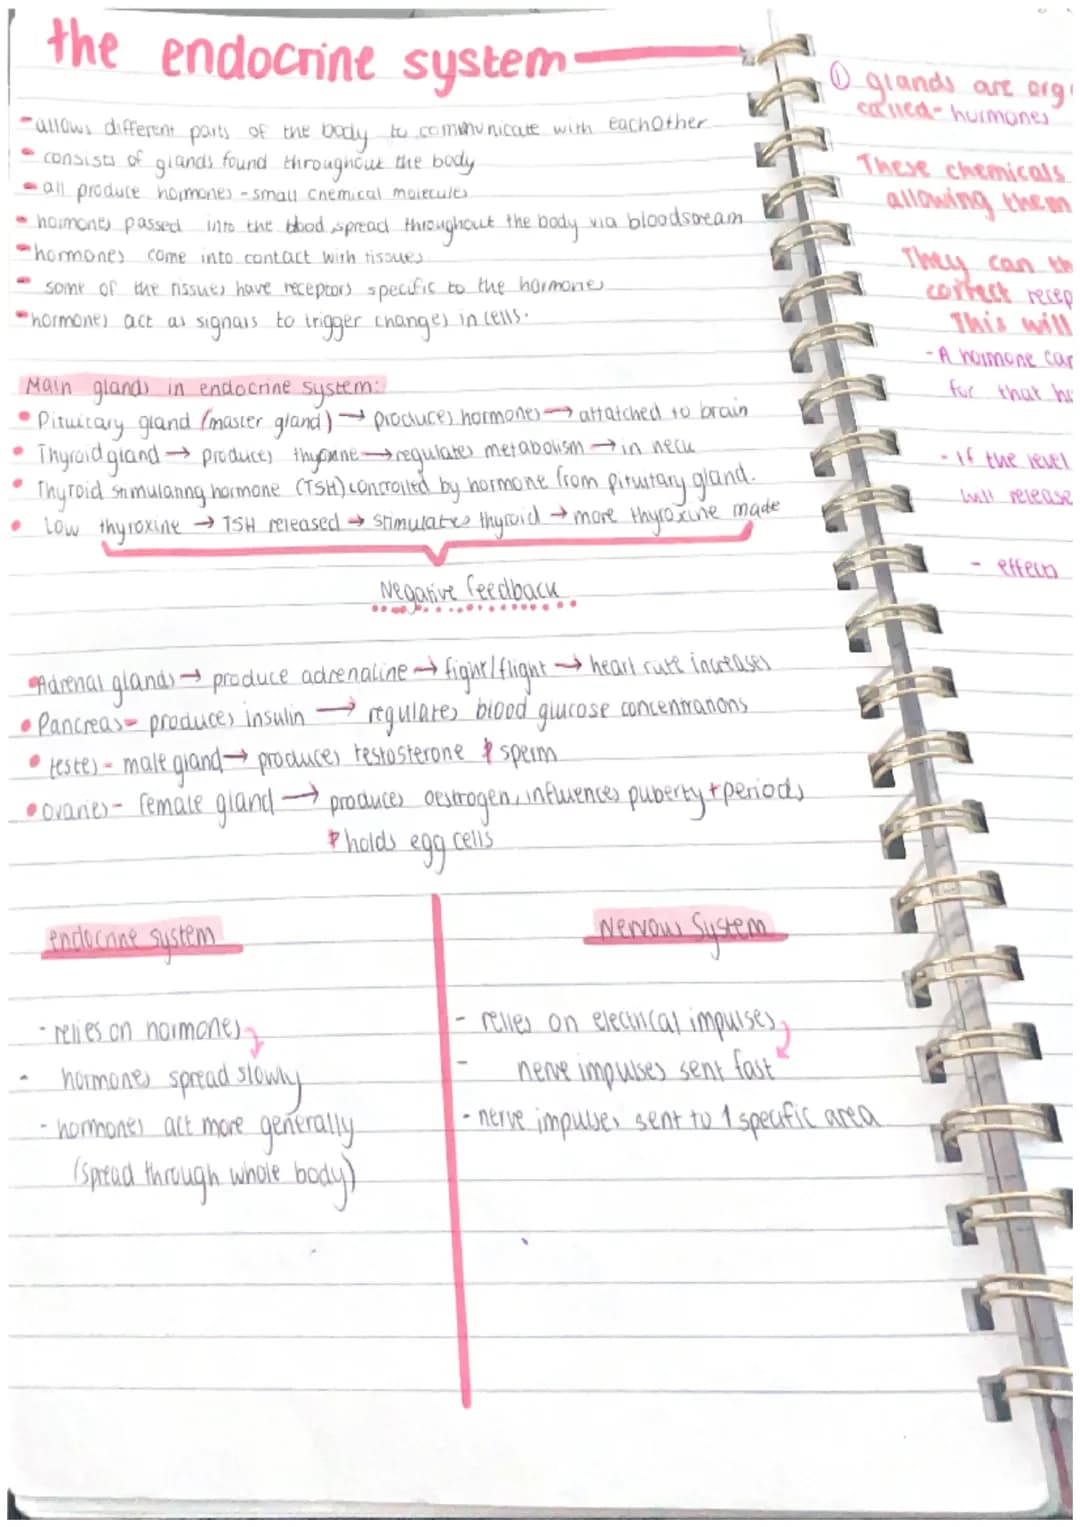 the endocrine system
- allows different parts of the body to communicate with eachother
- consists of glands found throughout the body
- all produce hormones - small chemical molecules
- hormones passed into the blood, spread throughout the body via bloodsream
- hormones come into contact with tissues
- some of the tissues have receptors specific to the hormones
- hormones act as signals to trigger changes in cells.
Main glands in endocrine system:
• Pituitary gland (master gland) → produces hormones → attatched to brain
• Thyroid gland → produces thyroxine → regulates metabolism → in neck
• Thyroid stimulating hormone (TSH) controlled by hormone from pituitary gland.
• Low thyroxine → TSH released → stimulates thyroid → more thyroxine made
Negative feedback
• Adrenal glands → produce adrenaline → fight/flight → heart rate increases
• Pancreas - produces insulin → regulates blood glucose concentrations
• testes - male gland → produces testosterone & sperm
• ovaries - female gland → produces oestrogen, influences puberty + periods
& holds egg cells
endocrine system
- relies on hormones
- hormones spread slowly
- hormones act more generally
(spread through whole body)
Nervous System
- relies on electrical impulses
- nerve impulses sent fast
- nerve impulses sent to 1 specific area
① glands are org
called - hormones
These chemicals
allowing them
They can th
correct recep
This will
- A hormone can
for that ho
- If the level
will release
- effects